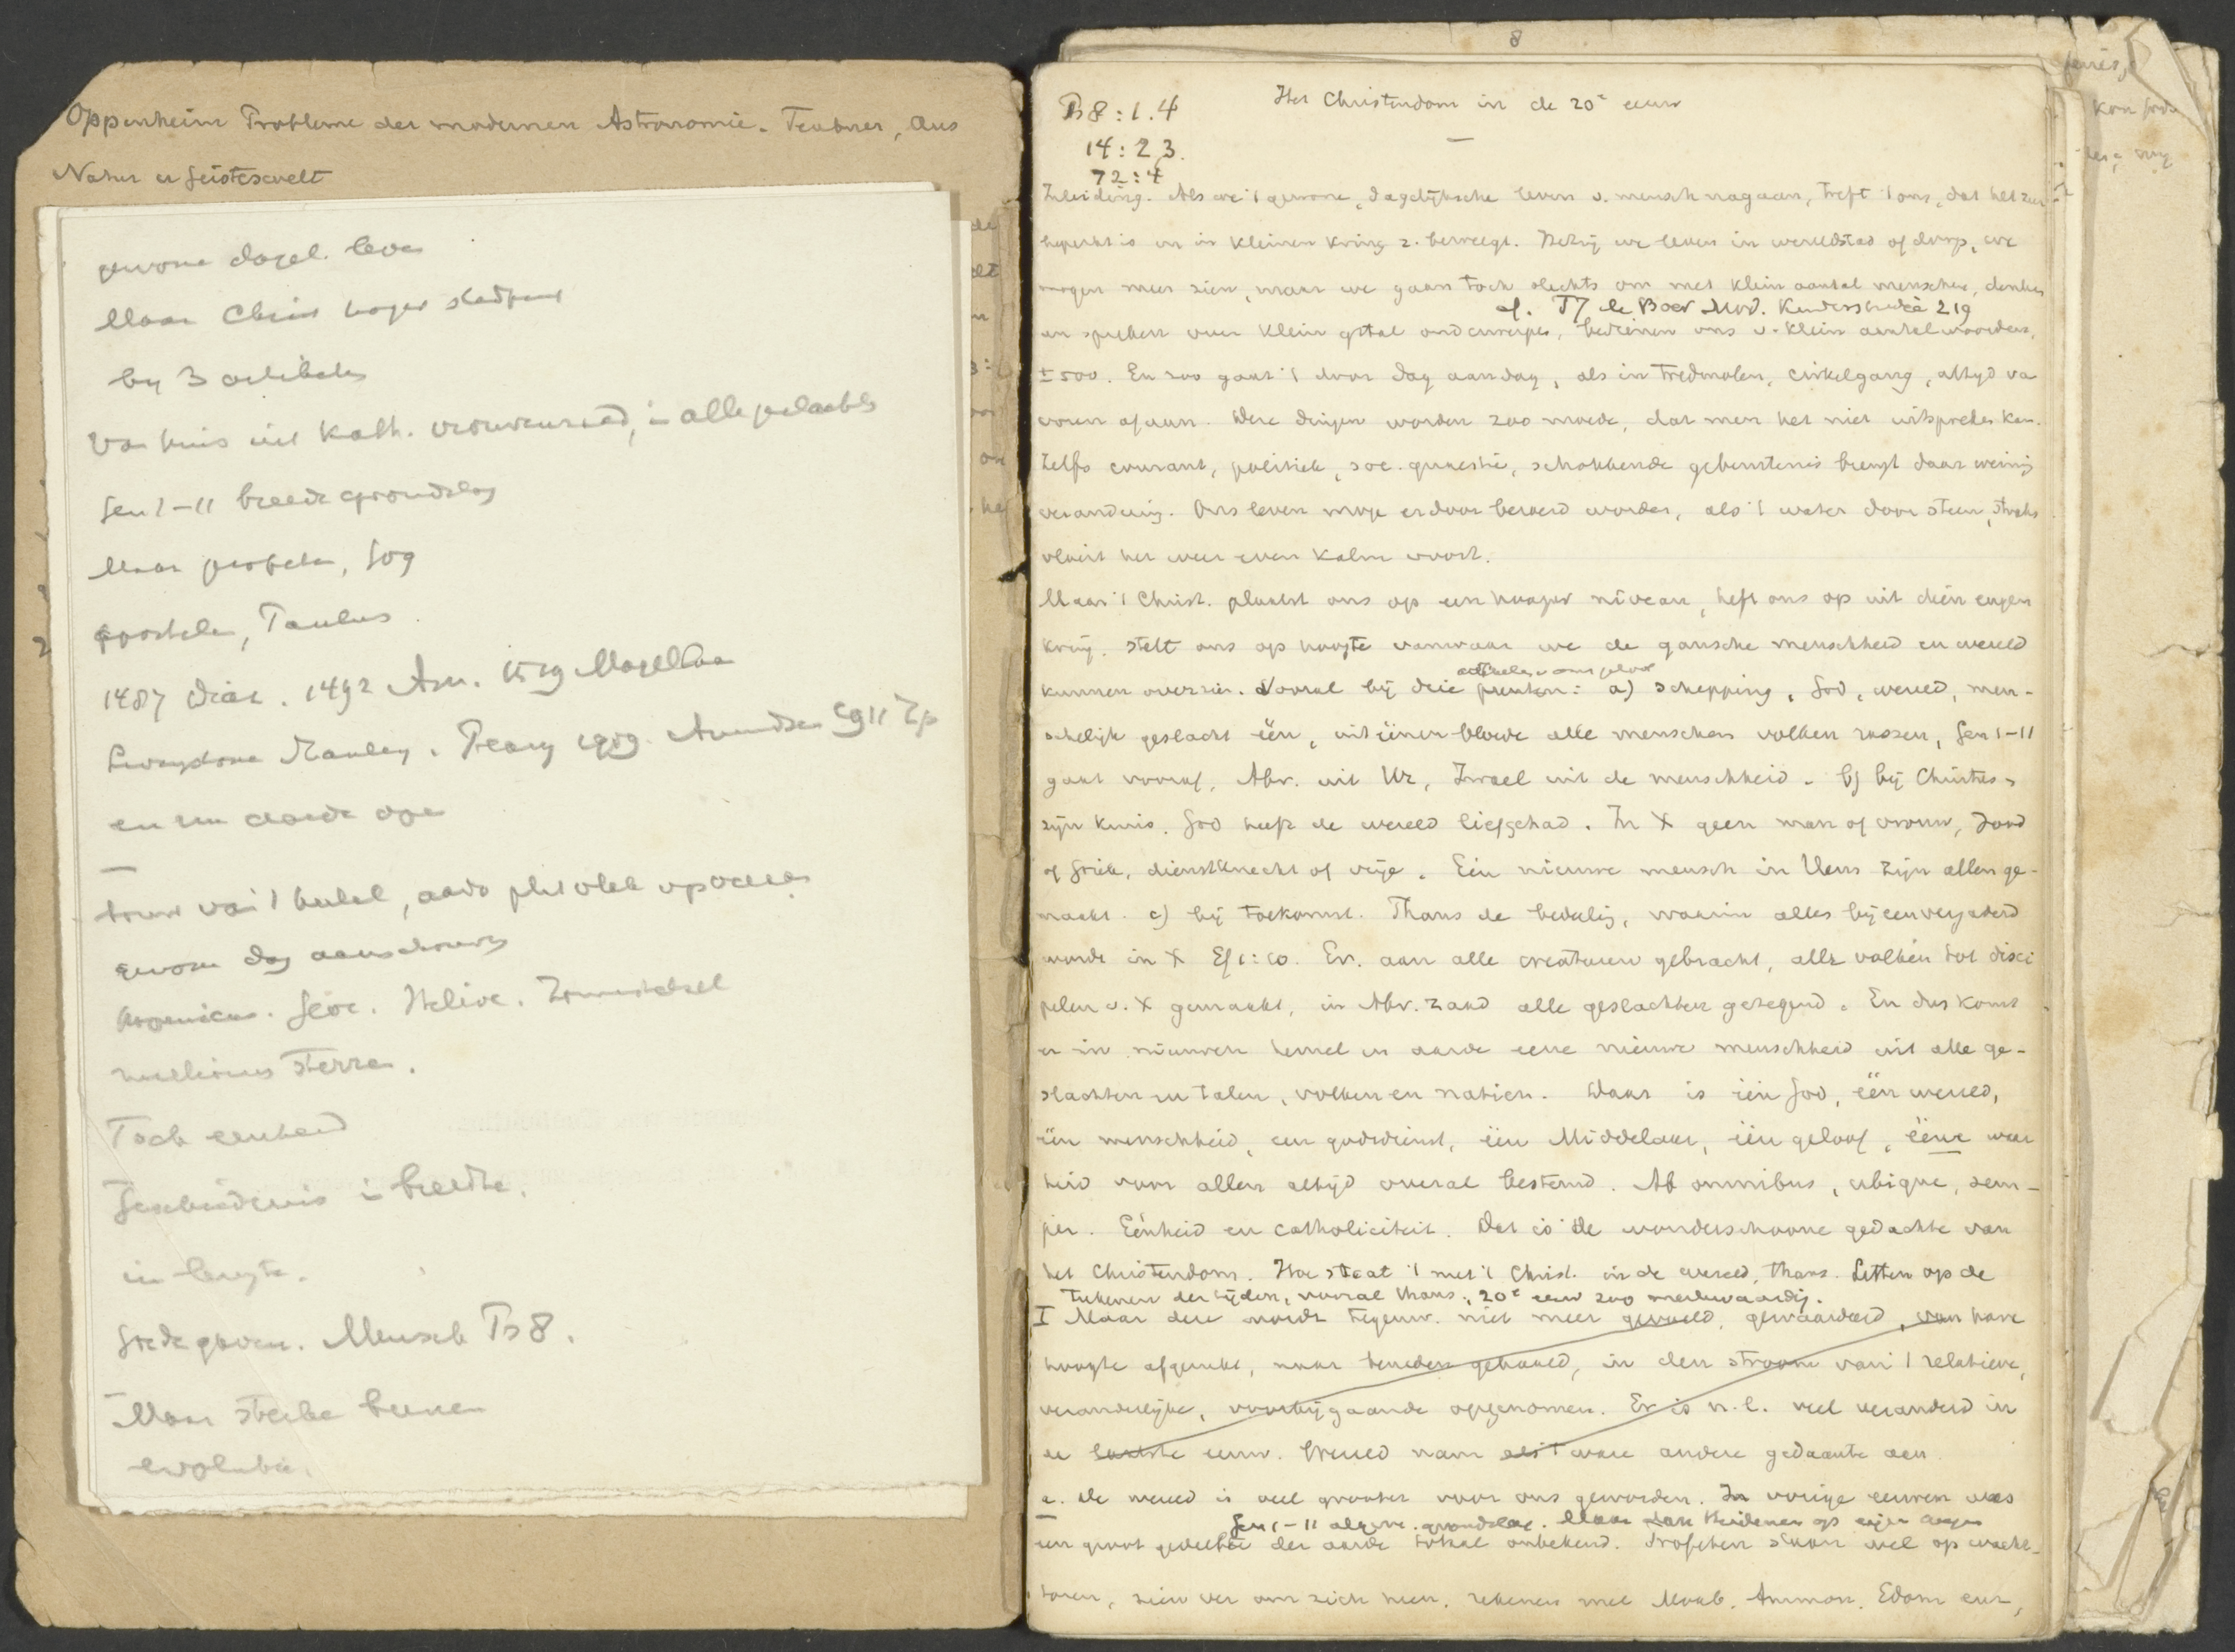 Oppenheim Probleme der modernen Astronomie. Teubner, Aus
Natur u Geisteswelt
gewone dagel. leven
Maar Christ hooger
by 3 artikelen
Van huis uit Kath. in alle
Gen 1-11 breede grondslag
Maar profeten, Jog
apostelen, Paulus
1487 Diaz. 1492 Am. 1519 Magellaan
Livingstone Stanley. Peary 1909. Amundsen 1911 Zp
en nu aarde open
bouw van 't heelal, aarde plat vlak
gewone dag aanschouwing
Copernicus. Geoc. Helioc. Zonnestelsel
millioenen sterren.
Toch eenheid
Geschiedenis in breedte.
in lengte.
Mensch Ps 8.
Maar sterke
evolutie.
8
Ps 8:1.4
14:2.3.
72:4
Het Christendom in de 20e eeuw
Inleiding. Als we 't gewone, dagelijksche leven v. mensch nagaan, treft 't ons, dat het zeer
beperkt is en in kleinen kring z. beweegt. Hetzij we leven in wereldstad of dorp, we
mogen meer zien, maar we gaan toch slechts om met klein aantal menschen, denken
cf. Tj de Boer Mod. 219
en spreken over klein getal onderwerpen, bedienen ons v. klein aantal woorden,
± 500. En zoo gaat 't door dag aan dag, als in tredmolen, cirkelgang, altijd va
voren af aan. Deze dingen worden zoo moede, dat men het niet uitspreken kan.
Zelfs courant, politiek, soc. quaestie, schokkende gebeurtenis brengt daar weinig
verandering. Ons leven moge erdoor beroerd worden, als 't water door steen, straks
vloeit het weer even kalm voort.
Maar 't Christ. plaatst ons op een hooger niveau, heft ons op uit dien engen
kring, stelt ons op hoogte vanwaar we de gansche menschheid en wereld
artikelen v ons geloof
kunnen overzien. Vooral bij drie punten: a) Schepping, God, wereld, men-
schelijk geslacht één, uit éénen bloede alle menschen volken rassen, Gen 1-11
gaat vooraf, Abr. uit Ur, Israel uit de menschheid. b) bij Christus,
zijn kruis. God heeft de wereld liefgehad. In X geen man of vrouw, Jood
of Griek, dienstknecht of vrije. Eén nieuwe mensch in Hem zijn allen ge-
maakt. c) bij toekomst. Thans de bedeeling, waarin alles bijeenvergaderd
wordt in X Ef 1:10. Ev. aan alle creaturen gebracht, alle volken tot disci
pelen v. X gemaakt, in Abr. zaad alle geslachten gezegend. En dus komt
er in nieuwen hemel en aarde eene nieuwe menschheid uit alle ge-
slachten en talen, volken en natien. Daar is één God, één wereld,
één menschheid, een godsdienst, één Middelaar, één geloof, ééne waar
heid voor allen altijd overal bestemd. Ab omnibus, ubique, sem-
per. Eenheid en catholiciteit. Dat is de wonderschoone gedachte van
het Christendom. Hoe staat 't met 't Christ. in de wereld, thans. Letten op de
teekenen der tijden, vooral thans, 20e eeuw zoo merkwaardig.
I Maar deze wordt tegenw. niet meer gevoeld, gewaardeerd, van hare
hoogte afgerukt, naar beneden gehaald, in den stroom van 't relatieve,
veranderlijke, voorbijgaande opgenomen. Er is n.l. veel veranderd in
de laatste eeuw. Wereld nam als 't ware andere gedaante aan.
a. De wereld is veel grooter voor ons geworden. In vorige eeuwen was
Gen 1-11 algem. grondslag. Maar dan Heidenen op eigen wegen
een groot gedeelte der aarde totaal onbekend. Profeten staan wel op wacht-
toren, zien ver om zich heen, rekenen met Moab, Ammon, Edom enz,